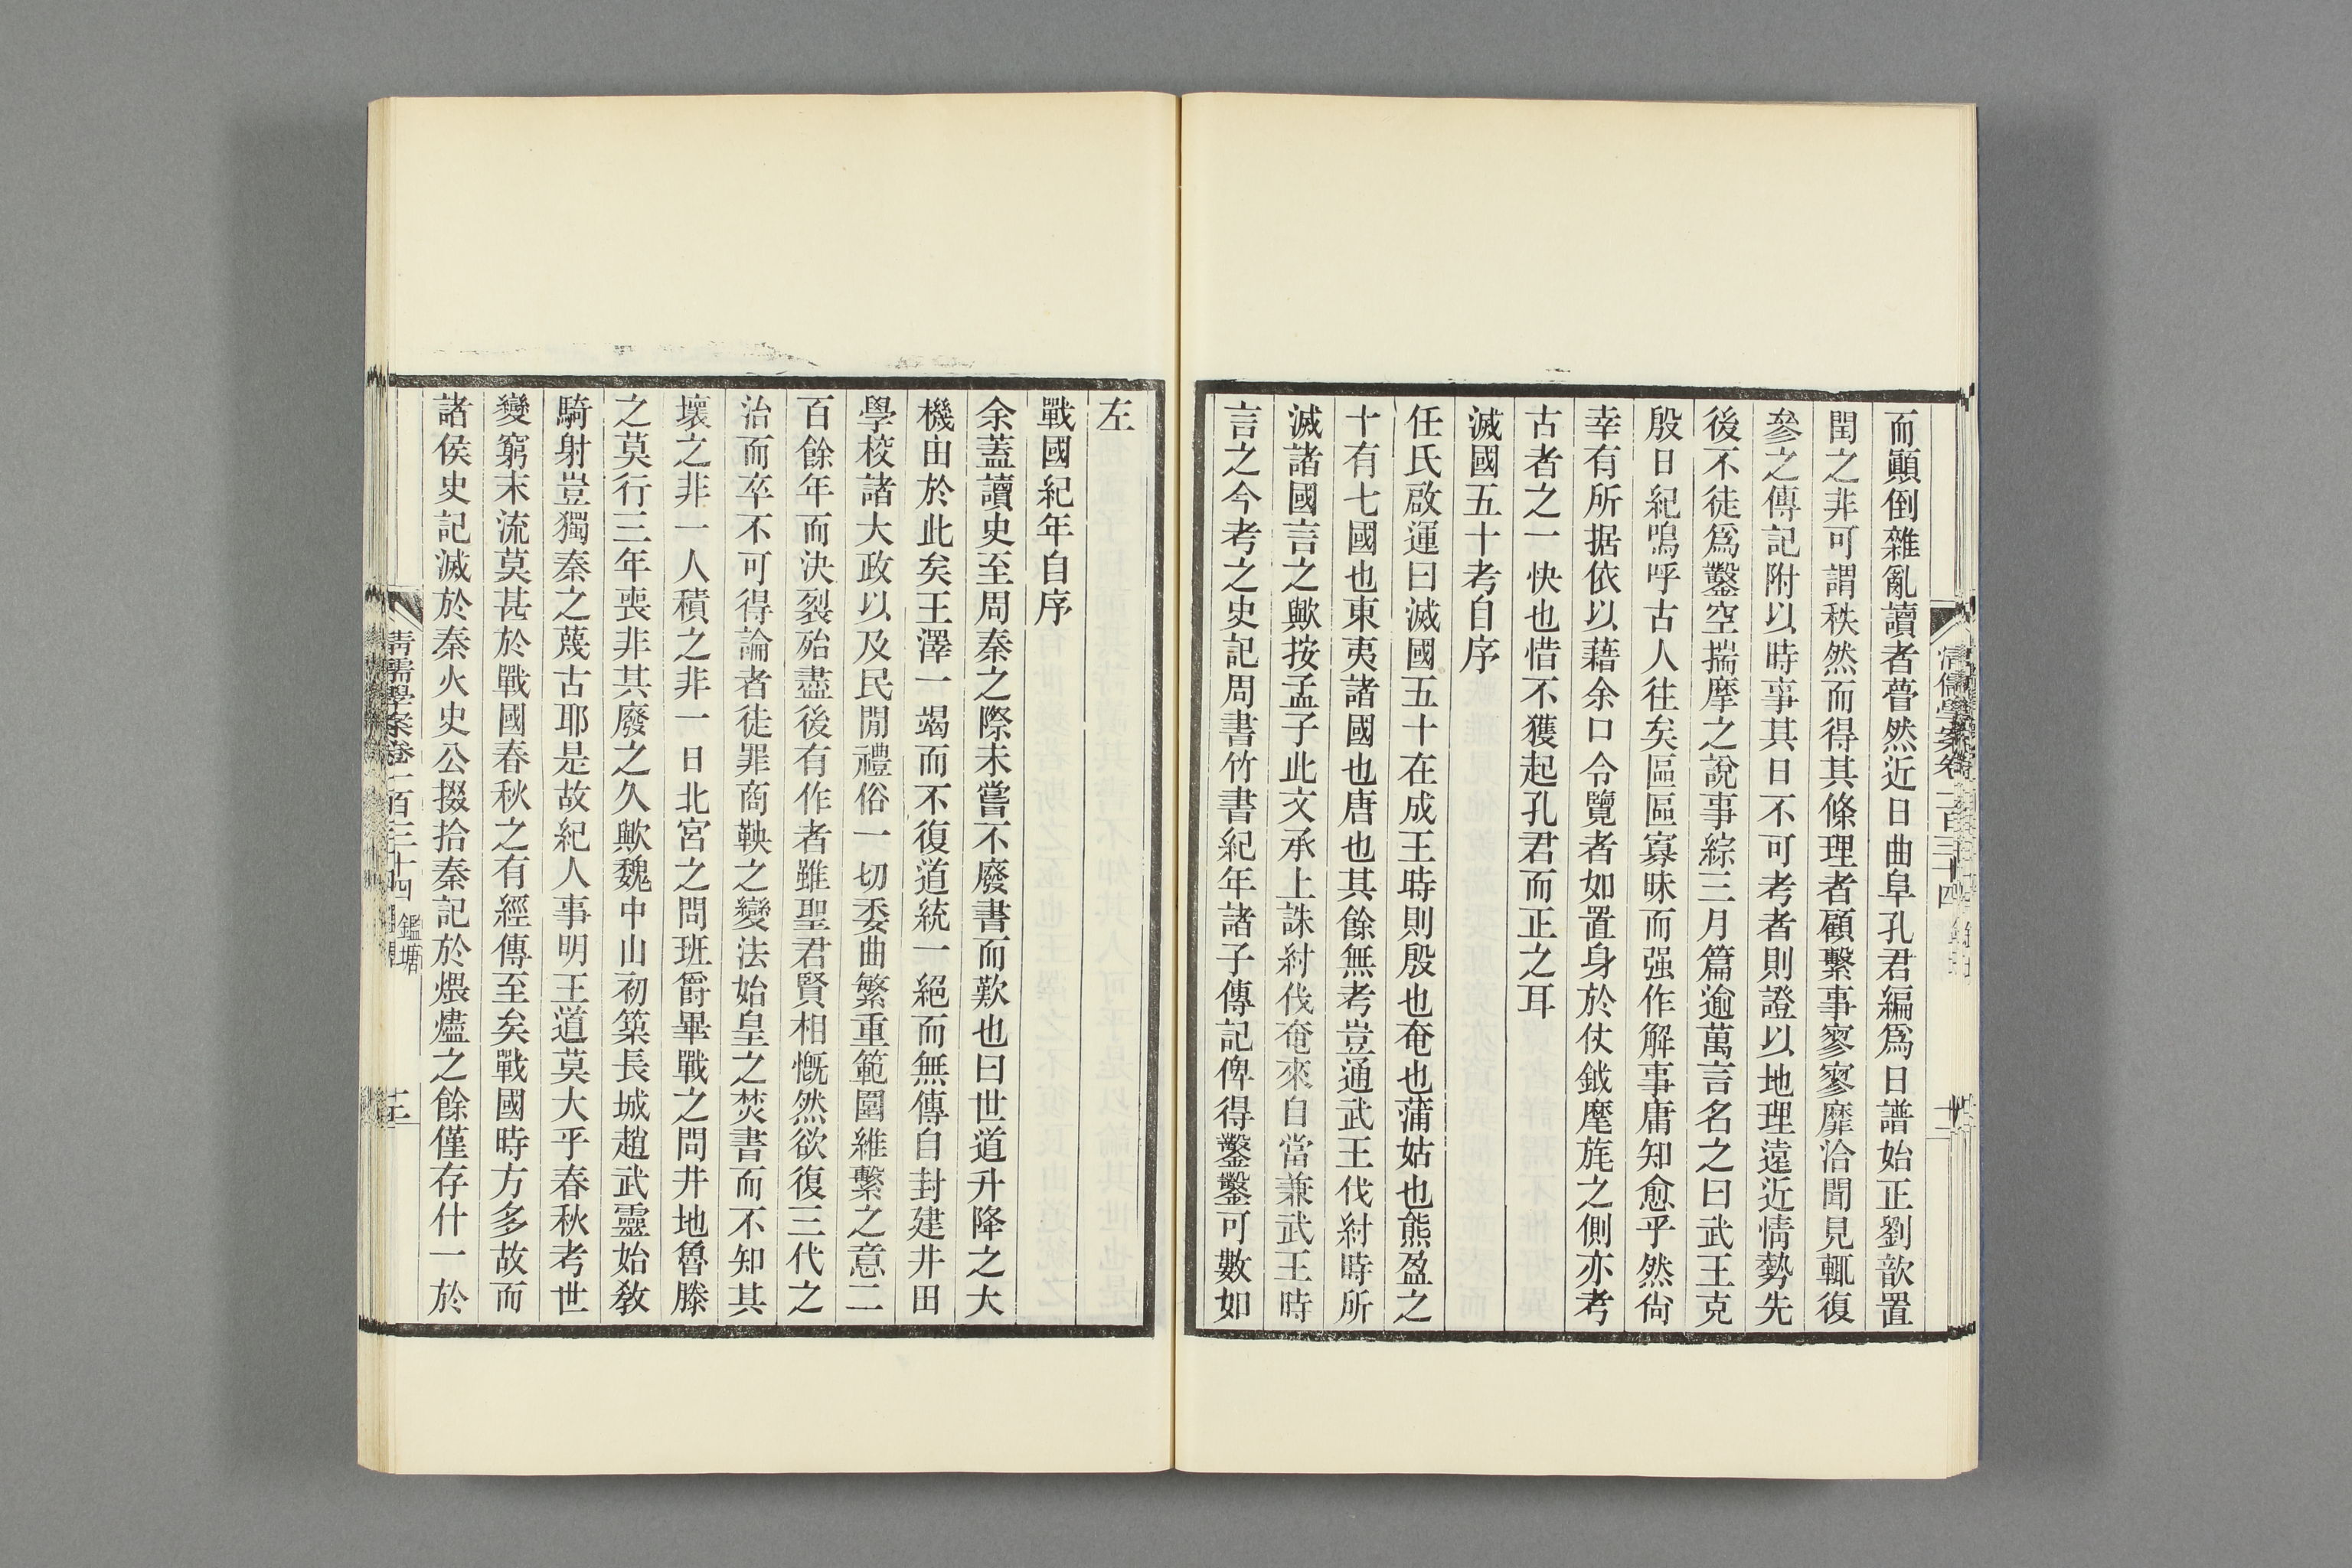 而顚倒雜亂讀者瞢然近日曲阜孔君編爲日譜始正劉歆置
閏之非可謂秩然而得其條理者顧繫事寥寥靡洽聞見輒復
參之傳記附以時事其日不可考者則證以地理遠近情勢先
後不徒爲鑿空揣摩之說事綜三月篇逾萬言名之曰武王克
殷日紀嗚呼古人往矣區區寡昧而强作解事庸知愈乎然尙
幸有所据依以藉余口令覽者如置身於仗鉞麾旄之側亦考
古者之一快也惜不獲起孔君而正之耳
滅國五十考自序
任氏啟運曰滅國五十在成王時則殷也奄也蒲姑也熊盈之
十有七國也東夷諸國也唐也其餘無考豈通武王伐紂時所
滅諸國言之歟按孟子此文承上誅紂伐奄來自當兼武王時
言之今考之史記周書竹書紀年諸子傳記俾得鑿鑿可數如
左
戰國紀年自序
余蓋讀史至周秦之際未嘗不廢書而歎也曰世道升降之大
機由於此矣王澤一竭而不復道統一絕而無傳自封建井田
學校諸大政以及民閒禮俗一切委曲繁重範圍維繫之意二
百餘年而決裂殆盡後有作者雖聖君賢相慨然欲復三代之
治而卒不可得論者徒罪商鞅之變法始皇之焚書而不知其
壞之非一人積之非一日北宮之問班爵畢戰之問井地魯滕
之莫行三年喪非其廢之久歟魏中山初築長城趙武靈始敎
騎射豈獨秦之蔑古耶是故紀人事明王道莫大乎春秋考世
變窮末流莫甚於戰國春秋之有經傳至矣戰國時方多故而
諸侯史記滅於秦火史公掇拾秦記於煨燼之餘僅存什一於
清儒學案卷一百三十四 鑑塘